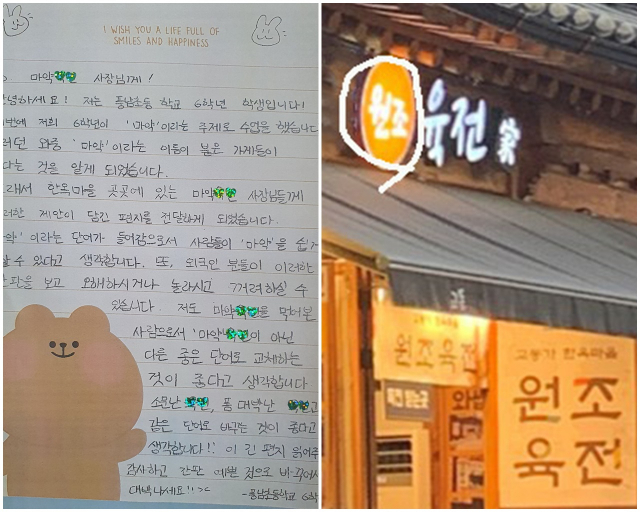 I WISH YOU A LIFE FULL OF
SMILES AND HAPPINESS
마약 사장님께!
안녕하세요! 저는 풍남초등 학교 6학년 학생입니다!
번에 저희 6학년이 '마약'이라는 주제로 수업을 했습니다
러던 와중 '마약'이라는 이름이 붙은 가게들이
다는 것을 알게 되었습니다.
그래서 한옥마을 곳곳에 있는 마약 사장님들께
러한 제안이 담긴 편지를 전달하게 되었습니다.
약' 이라는 단어가 들어감으로서 사람들이 '마약'을 쉽게
할 수 있다고 생각합니다. 또, 외국인 분들이 이러한
간판을 보고 오해하시거나 놀라시고 꺼려하실 수
있습니다. 저도 마약 을 먹어본
사람으로서 '마약 이 아닌
다른 좋은 단어로 교체하는
것이 좋다고 생각합니다
소문난, 품 대박난
같은 단어로 바꾸는 것이 좋다고
생각합니다!! 이 긴 편지 읽어주
감사하고 간판 예쁜 것으로 바꾸어서
대박나세요!! ><
-풍남초등학교 6학
원조
육전
家
원조육전
교동가 한옥마을
원조
육전